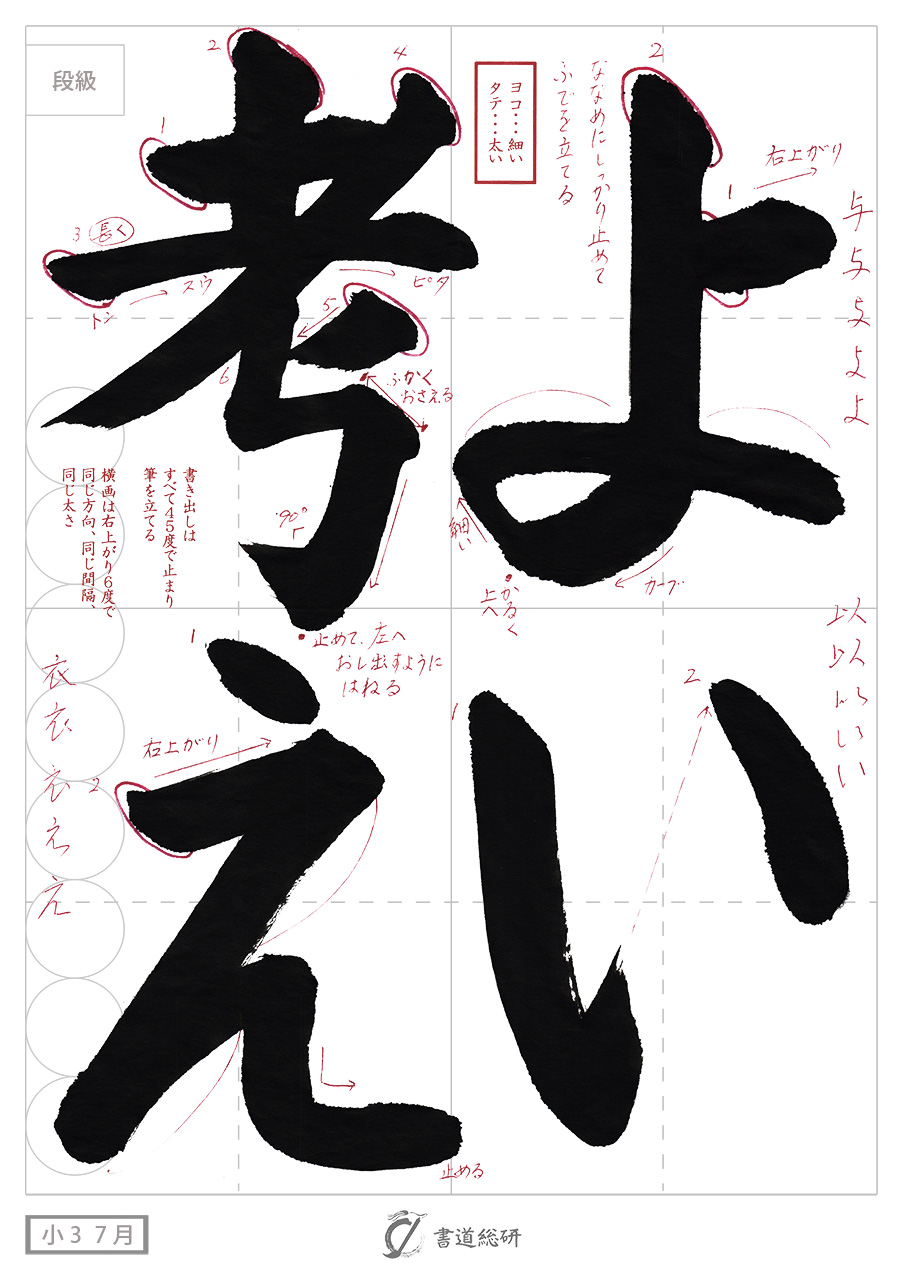 よい
考え
段級
ヨコ・・・細い
タテ・・・太い
ななめにしっかり止めて
ふでを立てる
2
1
右上がり
与
与
与
よ
よ
細い
かるく
上へ
カーブ
2
4
1
3
長く
トン
スウ
ピタ
5
6
ふかく
おさえる
90°
書き出しは
すべて45度で止まり
筆を立てる
横画は右上がり6度で
同じ方向、同じ間隔、
同じ太さ
止めて、左へ
おし出すように
はねる
以
以
以
い
い
1
2
1
2
右上がり
衣
衣
衣
え
え
止める
小3 7月
書道総研